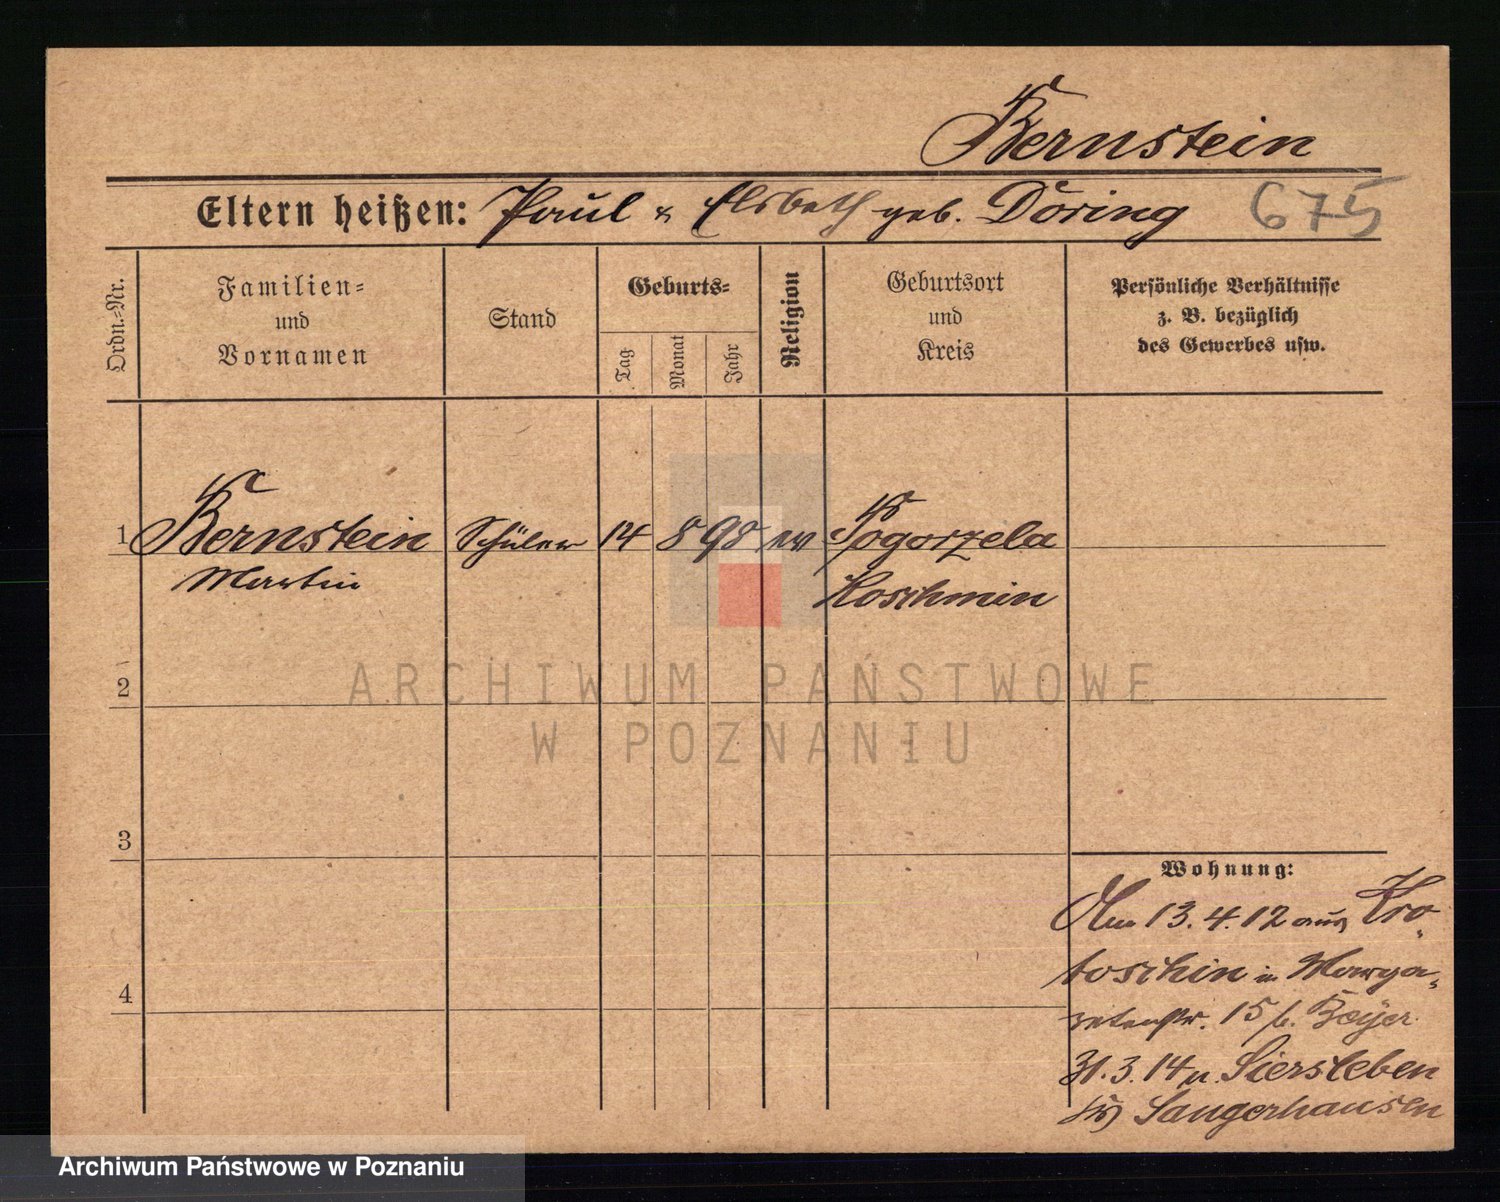 Bernstein
Eltern heißen: Paul u Elsbeth geb. Döring 675
Ordn.-Nr.
Familien-
und
Vornamen
Stand
Geburts-
Tag
Monat
Jahr
Religion
Geburtsort
und
Kreis
Persönliche Verhältnisse
z. B. bezüglich
des Gewerbes usw.
1 Bernstein Schüler 14 8 98 ev Pogorzela
Martin Koschmin
2
ARCHIWUM PAŃSTWOWE
W POZNANIU
3
Wohnung:
Am 13.4.12 aus Kro-
toschin in Marga-
4
retenstr. 15 b. Beyer
31.3.14 n. Siersleben
Sangerhausen
Archiwum Państwowe w Poznaniu